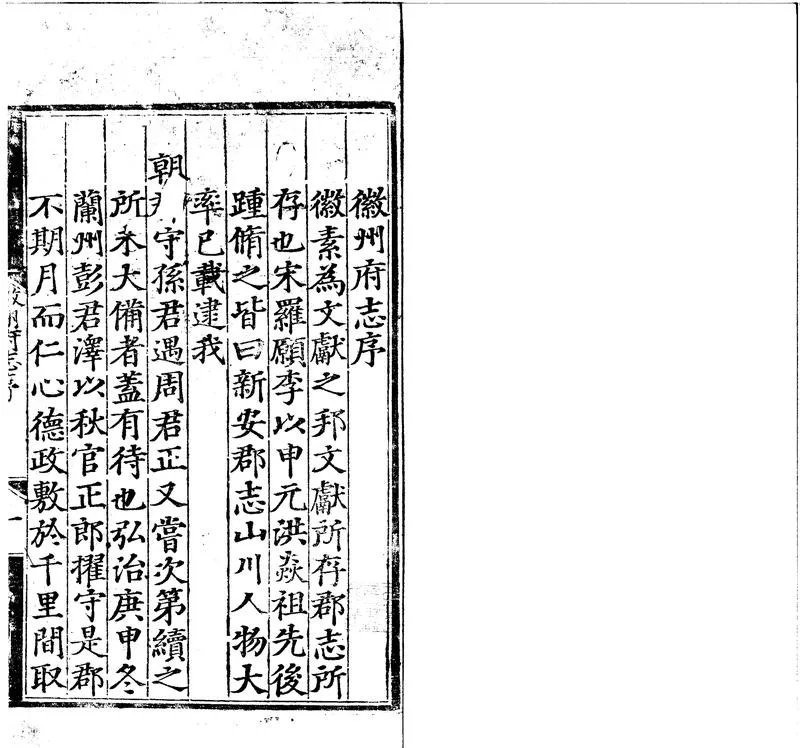 徽州府志序
徽素為文獻之邦文獻所存郡志所
存也宋羅願李以申元洪焱祖先後
踵脩之皆曰新安郡志山川人物大
率已載逮我
朝 守孫君遇周君正又嘗次第續之
所未大備者蓋有待也弘治庚申冬
蘭州彭君澤以秋官正郎擢守是郡
不期月而仁心德政敷於千里間取
府志序
一